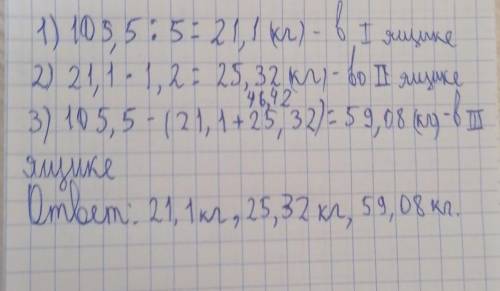 1) 105,5 : 5 = 21,1 (кг) - в I ящике
2) 21,1 · 1,2 = 25,32 (кг) - во II ящике
46,42
3) 105,5 - (21,1 + 25,32) = 59,08 (кг) - в III
ящике
Ответ: 21,1 кг, 25,32 кг, 59,08 кг.